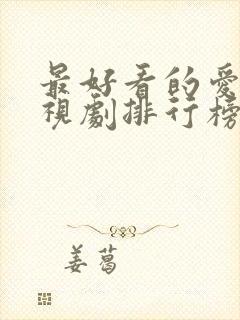 最好看的愛
視劇排行榜
姜葛